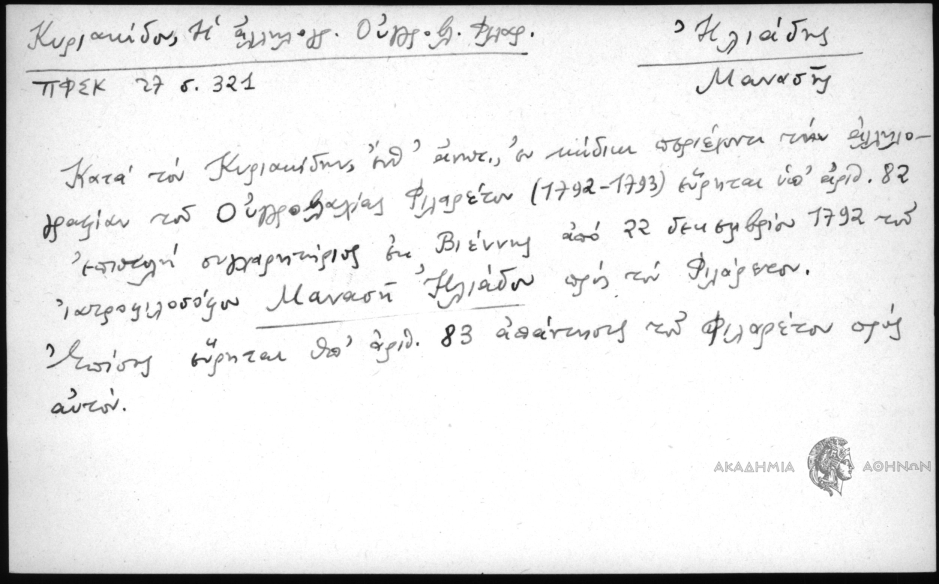 Κυριακίδου, Ἡ ἀλληλογρ. Οὑγγροβλ. Φιλαρ.
Ἠλιάδης
ΠΦΣΚ 27 σ. 321
Μανασῆς
Κατά τόν Κυριακίδην, ἔνθ' ἀνωτ., ἐν κώδικι περιέχοντι τήν ἀλληλο-
γραφίαν τοῦ Οὑγγροβλαχίας Φιλαρέτου (1792-1793) εὕρηται ὑπ' ἀριθ. 82
ἐπιστολή συγχαρητήριος ἐκ Βιέννης ἀπό 22 δεκεμβρίου 1792 τοῦ
ἰατροφιλοσόφου Μανασῆ Ἠλιάδου πρός τόν Φιλάρετον.
Ἐπίσης εὕρηται ὑπ' ἀριθ. 83 ἀπάντησις τοῦ Φιλαρέτου πρός
αὐτόν.
ΑΚΑΔΗΜΙΑ ΑΘΗΝΩΝ